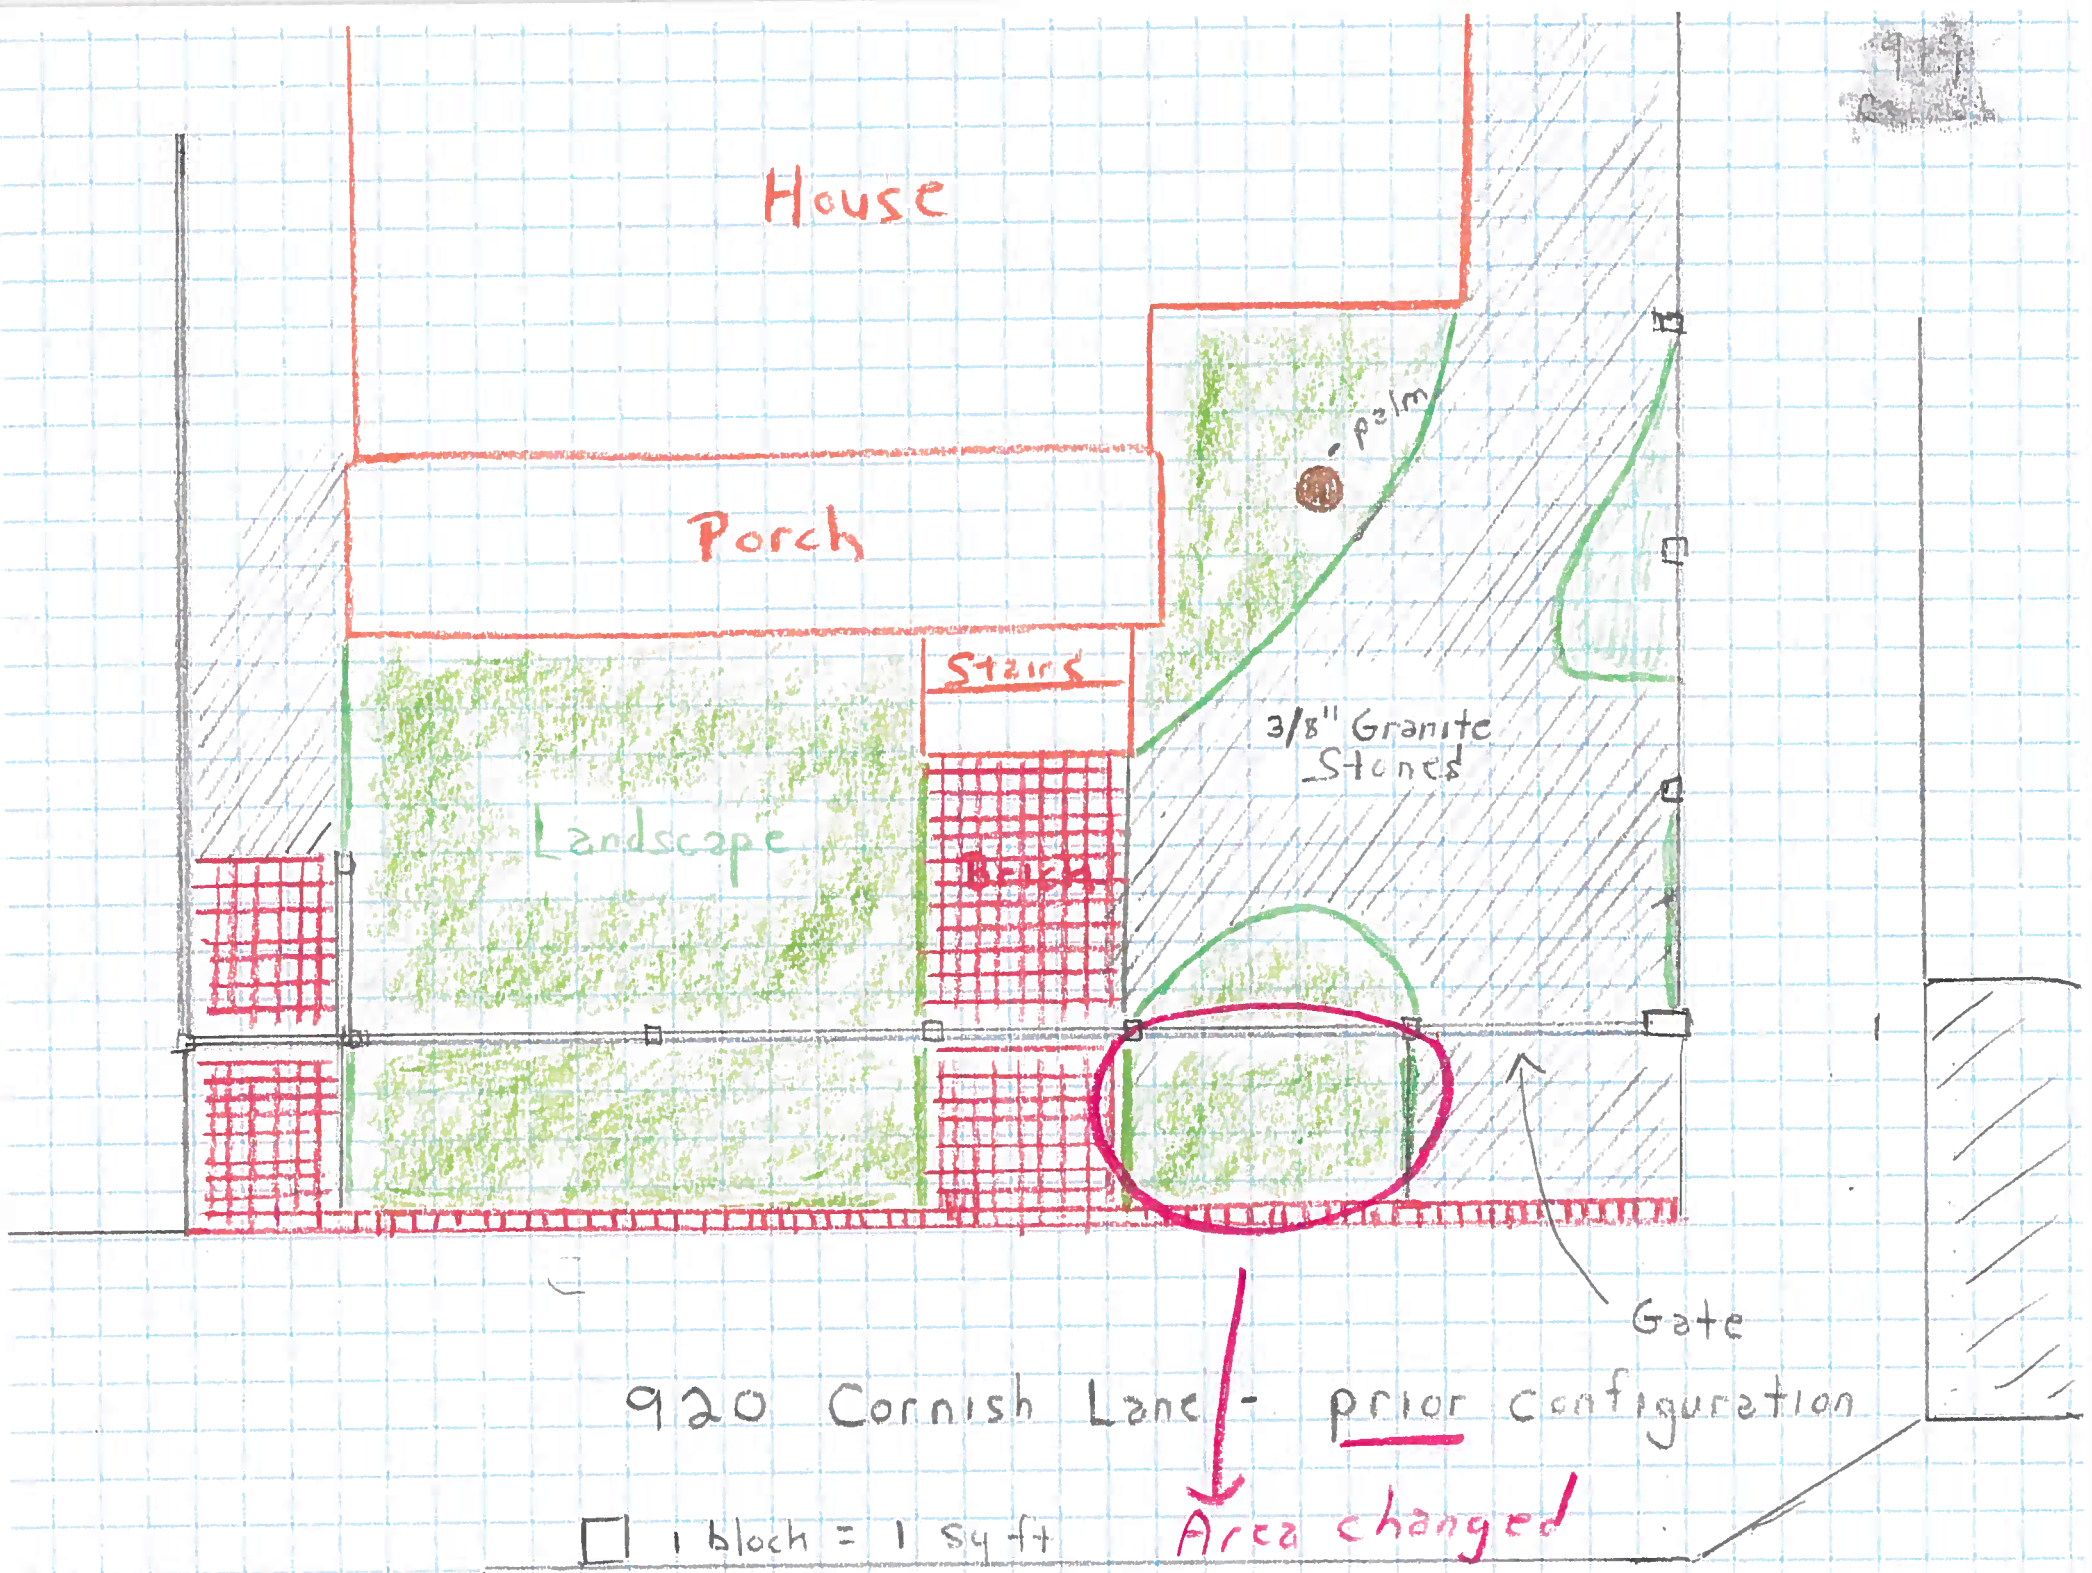 House
palm
Porch
Stairs
3/8" Granite
Stones
Landscape
Brick
Gate
920 Cornish Lane - prior configuration
1 block = 1 sq ft
Area changed